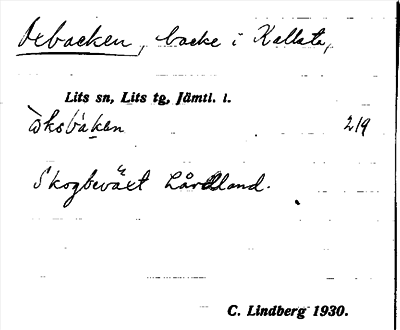 Oxbacken, backe i Kallsta,
Lits sn, Lits tg, Jämtl. l.
òksbàken 219
Skogbeväxt hårdland.
C. Lindberg 1930.